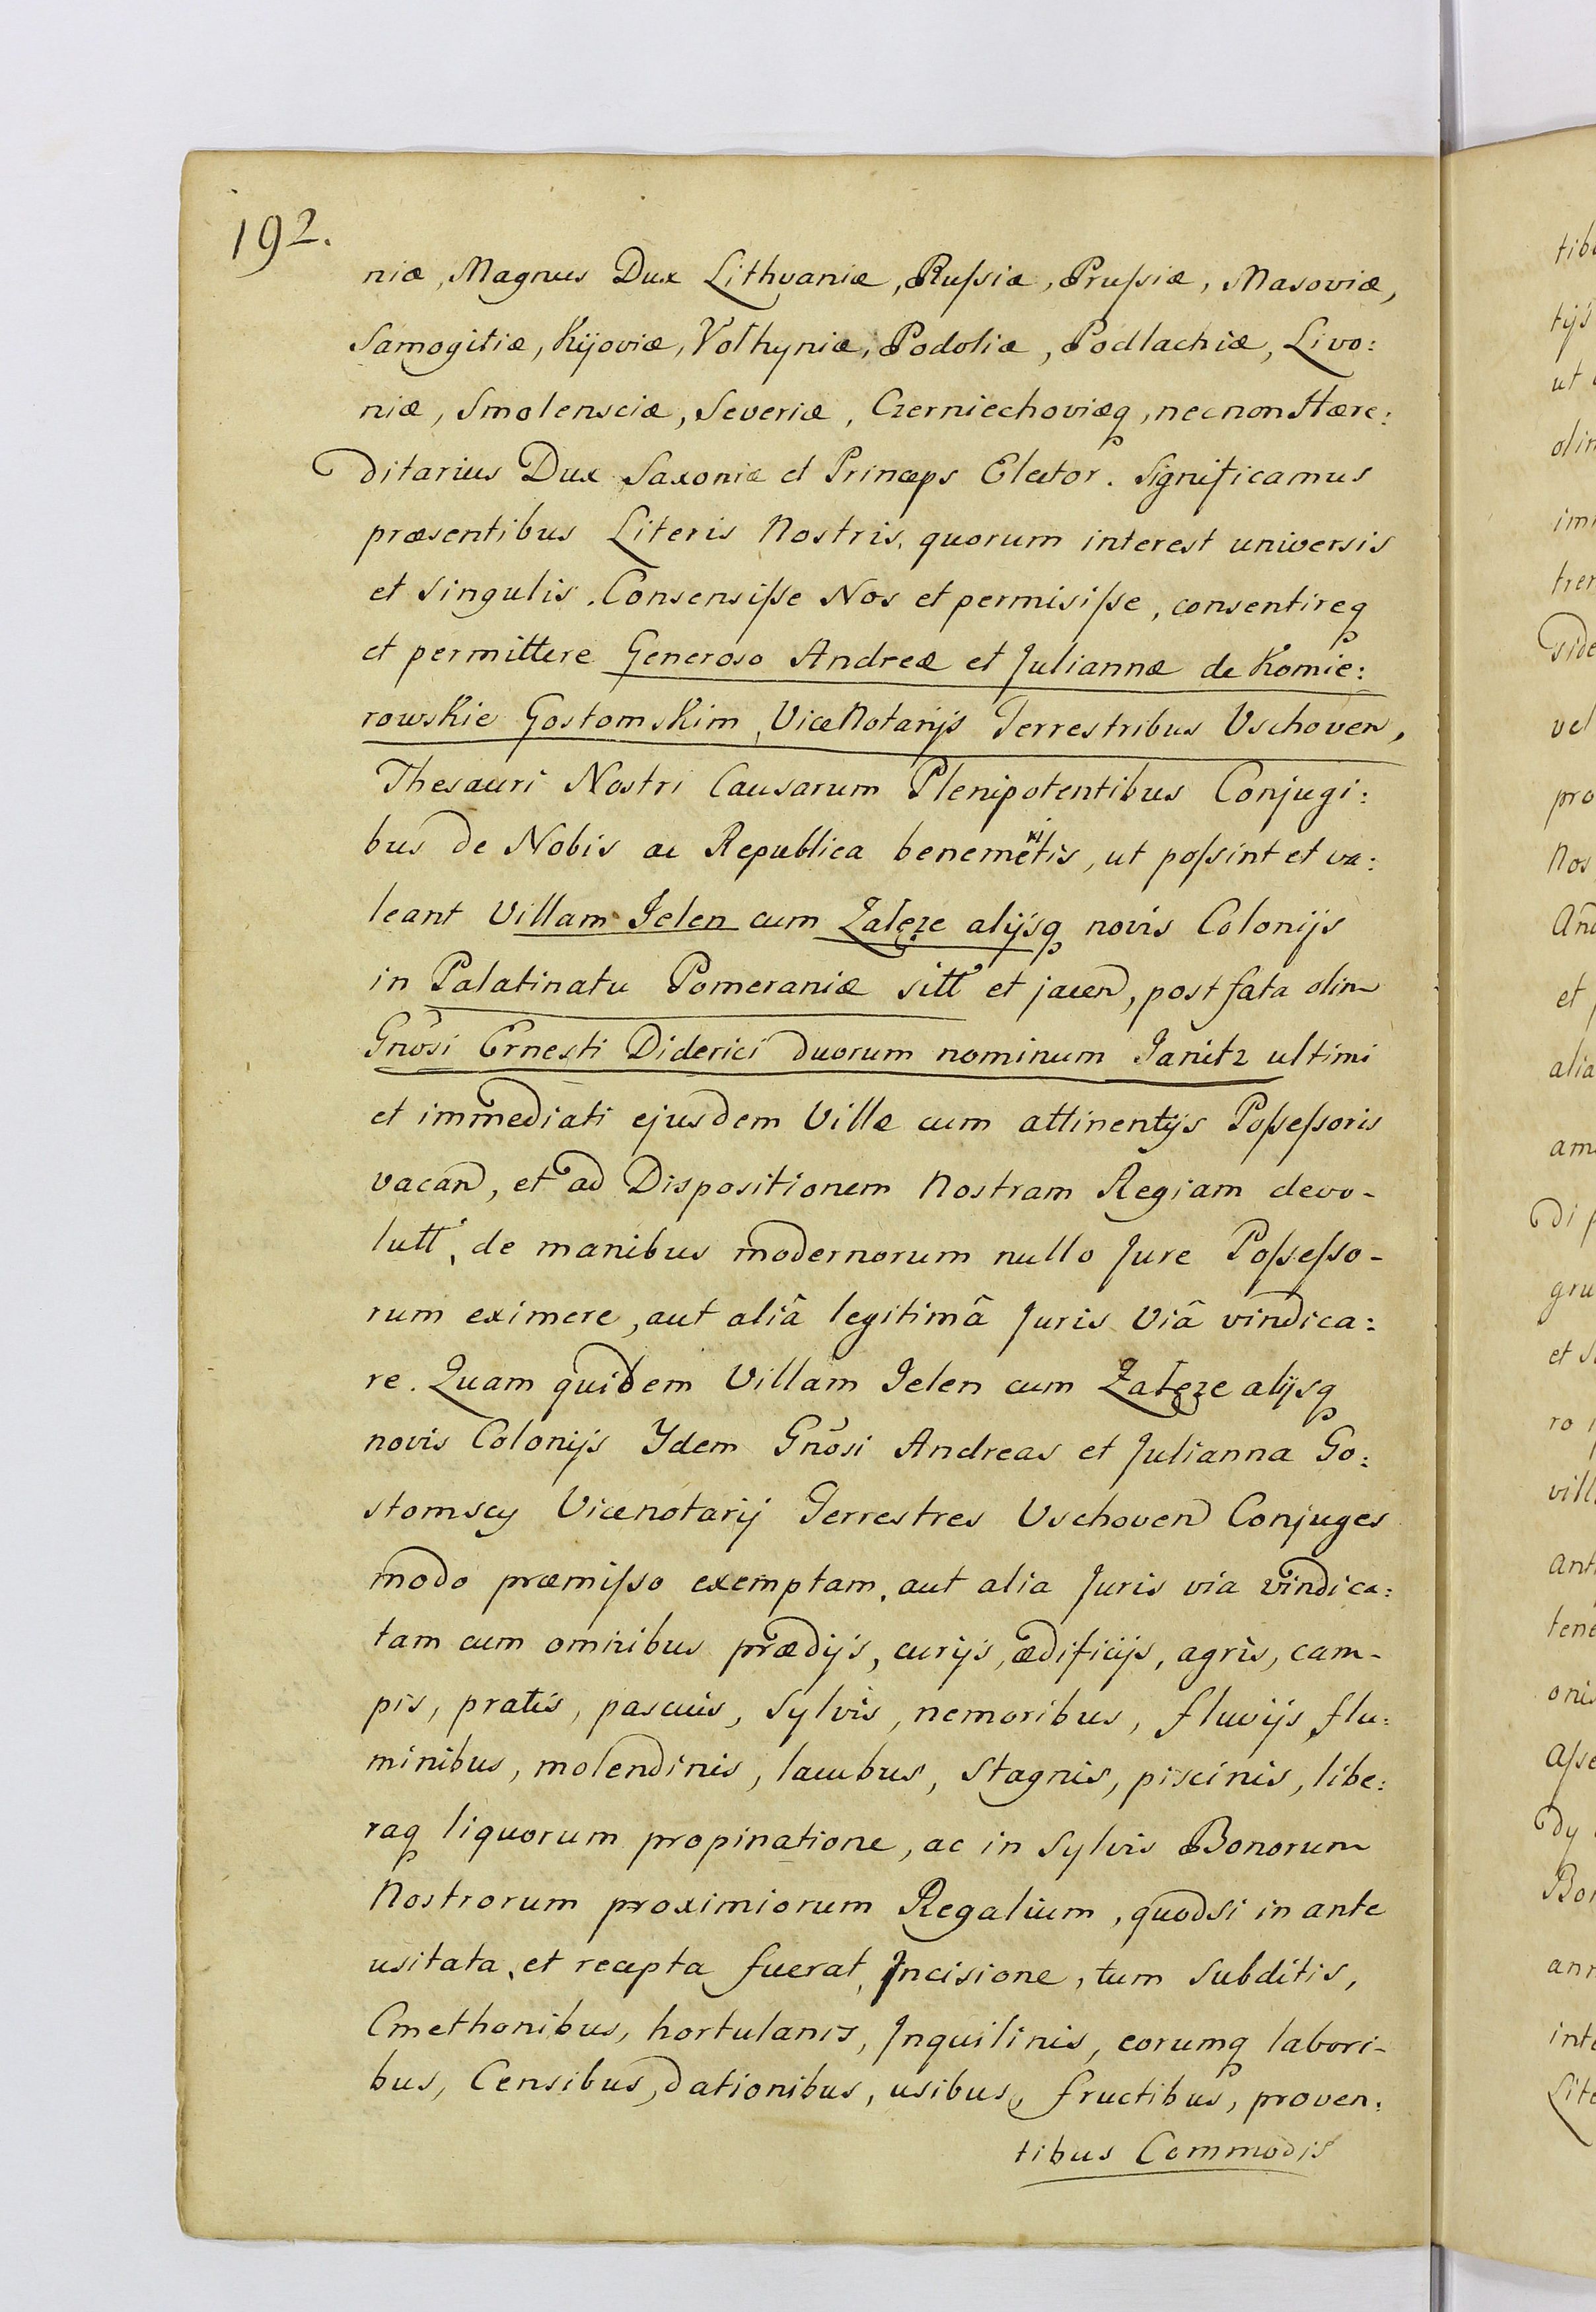 192.
niæ, Magnus Dux Lithvaniæ, Ruſsiæ, Pruſsiæ, Masoviæ,
Samogitiæ, Kijoviæ, Volhyniæ, Podoliæ, Podlachiæ, Livo:
niæ, Smolensciæ, Severiæ, Czerniechoviæq, necnon Hære:
ditarius Dux Saxoniæ et Princeps Elector. Significamus
præsentibus Literis Nostris, quorum interest universis
et singulis. Consensiſse Nos et permisiſse, consentireq
et permittere Generoso Andreæ et Juliannæ de Komie:
rowskie Gostomskim, ViceNotarijs Terrestribus Vschoven,
Thesauri Nostri Causarum Plenipotentibus Conjugi:
bus de Nobis ac Republica benemeritis, ut poſsint et va:
leant Villam Jelen cum Zalęże alijsq novis Colonijs
in Palatinatu Pomeraniæ sitt et jacen, post fata olim
Gnosi Ernesti Diderici duorum nominum Janitz ultimi
et immediati ejusdem Villæ cum attinentijs Poſseſsoris
vacan, et ad Dispositionem Nostram Regiam devo-
lutt, de manibus modernorum nullo Jure Poſseſso-
rum eximere, aut aliâ legitimâ Juris Viâ vindica:
re. Quam quidem Villam Jelen cum Zalęże alijsq
novis Colonijs Ydem Gnosi Andreas et Julianna Go:
stomscy Vicenotarij Terrestres Vschoven Conjuges
modo præmiſso exemptam, aut alia Juris via vindica:
tam cum omnibus prædijs, curijs, ædificijs, agris, cam-
pis, pratis, pascuis, Sylvis, nemoribus, fluvijs, flu:
minibus, molendinis, lacubus, Stagnis, piscinis, libe:
raq liquorum propinatione, ac in Sylvis Bonorum
Nostrorum proximiorum Regalium, quodsi in ante
usitata, et recepta fuerat, Incisione, tum Subditis,
Cmethonibus, hortulanis, Inquilinis, eorumq labori-
bus, Censibus, dationibus, usibus, fructibus, proven:
tibus Commodis
tib
tijs
ut
olin
im
tren
side
vel
pro
Nos
et
alia
am
di
gru
et
ro
vill
ant
tene
onis
aſse
dy
Bon
ann
inte
Lite